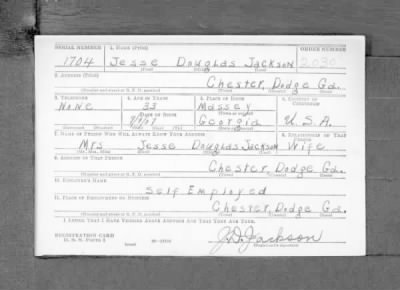 SERIAL NUMBER 1. NAME (Print) ORDER NUMBER
1704 Jesse Douglas Jackson 2030
(First) (Middle) (Last)
2. ADDRESS (Print)
Chester, Dodge Ga.
3. TELEPHONE 4. AGE IN YEARS 5. PLACE OF BIRTH 6. COUNTRY OF CITIZENSHIP
None 33 Massey
DATE OF BIRTH
Georgia U.S.A.
7. NAME OF PERSON WHO WILL ALWAYS KNOW YOUR ADDRESS 8. RELATIONSHIP OF THAT PERSON
Mrs Jesse Douglas Jackson Wife
(Mr., Mrs., Miss) (First) (Middle) (Last)
9. ADDRESS OF THAT PERSON
Chester, Dodge Ga.
10. EMPLOYER'S NAME
Self Employed
11. PLACE OF EMPLOYMENT OR BUSINESS
Chester, Dodge Ga.
I AFFIRM THAT I HAVE VERIFIED ABOVE ANSWERS AND THAT THEY ARE TRUE.
REGISTRATION CARD
D. S. S. FORM 1
J.D. Jackson